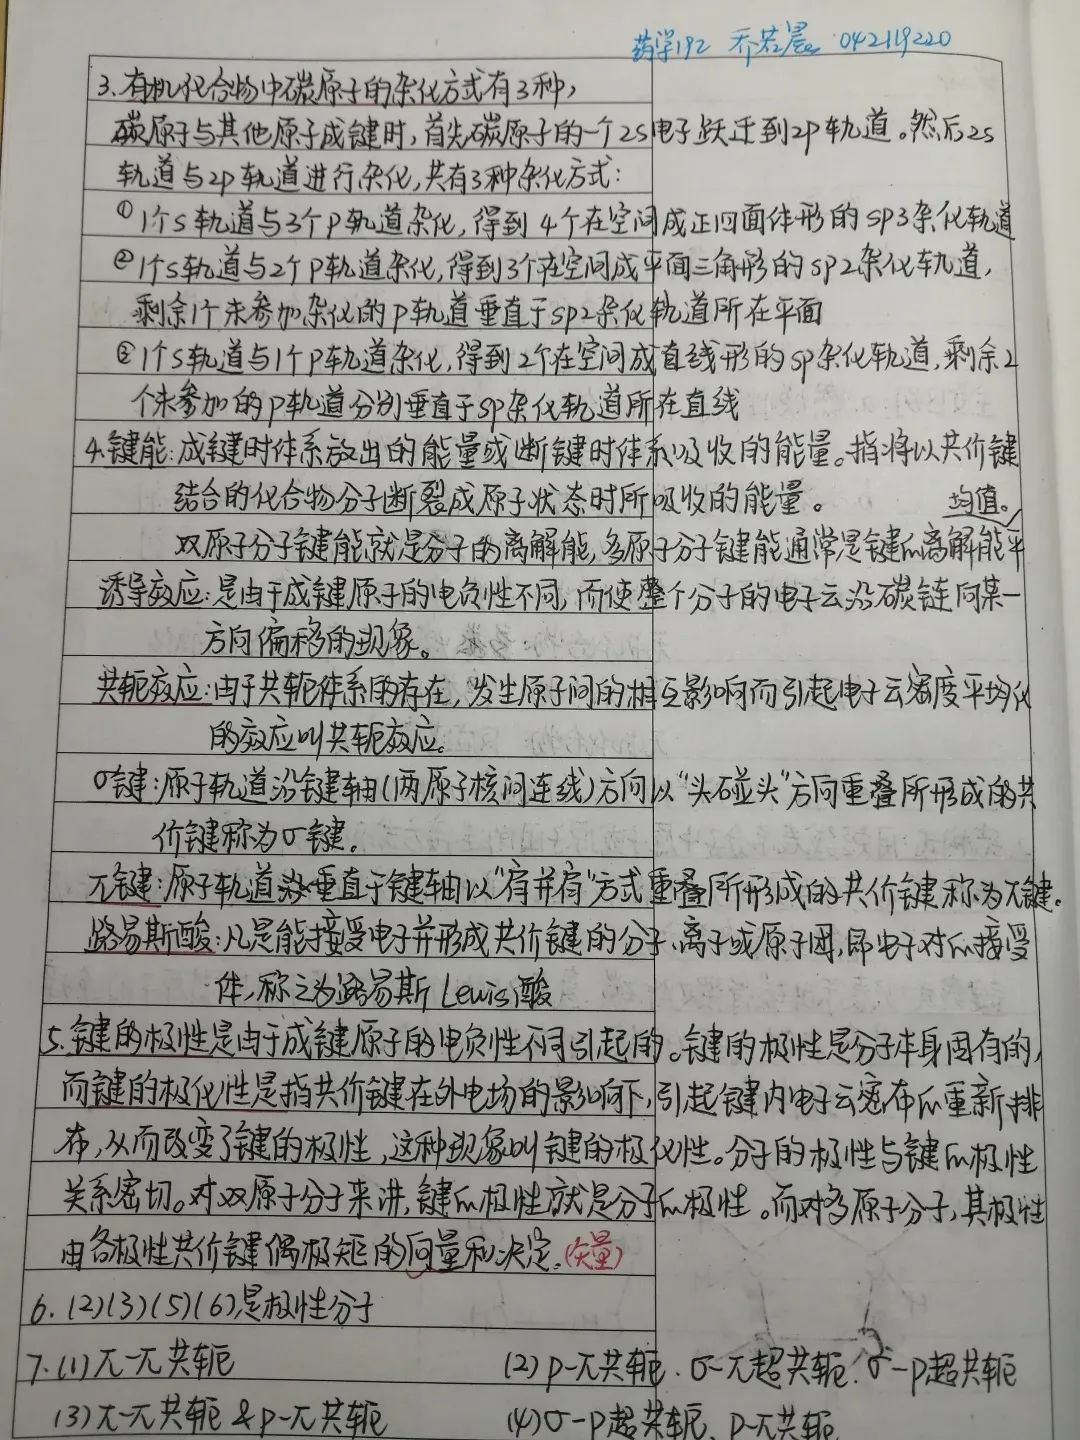 药学192 乔若晨 042119220
3.有机化合物中碳原子的杂化方式有3种,
碳原子与其他原子成键时,首先碳原子的一个2s电子跃迁到2p轨道。然后2s
轨道与2p轨道进行杂化,共有3种杂化方式:
①1个s轨道与3个p轨道杂化,得到4个在空间成正四面体形的sp3杂化轨道
②1个s轨道与2个p轨道杂化,得到3个在空间成平面三角形的sp2杂化轨道,
剩余1个未参加杂化的p轨道垂直于sp2杂化轨道所在平面
③1个s轨道与1个p轨道杂化,得到2个在空间成直线形的sp杂化轨道,剩余2
个未参加的p轨道分别垂直于sp杂化轨道所在直线
4.键能:成键时体系放出的能量或断键时体系吸收的能量。指将以共价键
结合的化合物分子断裂成原子状态时所吸收的能量。
双原子分子键能就是分子的离解能,多原子分子键能通常是键的离解能平
均值。
诱导效应:是由于成键原子的电负性不同,而使整个分子的电子云沿碳链向某一
方向偏移的现象。
共轭效应:由于共轭体系的存在,发生原子间的相互影响而引起电子云密度平均化
的效应叫共轭效应。
σ键:原子轨道沿键轴(两原子核间连线)方向以“头碰头”方向重叠所形成的共
价键称为σ键。
π键:原子轨道垂直于键轴以“肩并肩”方式重叠所形成的共价键称为π键。
路易斯酸:凡是能接受电子并形成共价键的分子、离子或原子团,即电子对的接受
体,称之为路易斯Lewis酸
5.键的极性是由于成键原子的电负性不同引起的。键的极性是分子本身固有的,
而键的极化性是指共价键在外电场的影响下,引起键内电子云密布的重新排
布,从而改变了键的极性,这种现象叫键的极化性。分子的极性与键的极性
关系密切。对双原子分子来讲,键的极性就是分子的极性。而对多原子分子,其极性
由各极性共价键偶极矩的向量和决定。(矢量)
6.(2)(3)(5)(6)是极性分子
7.(1)π-π共轭 (2)p-π共轭、σ-π超共轭、σ-p超共轭
(3)π-π共轭 & p-π共轭 (4)σ-p超共轭、p-π共轭